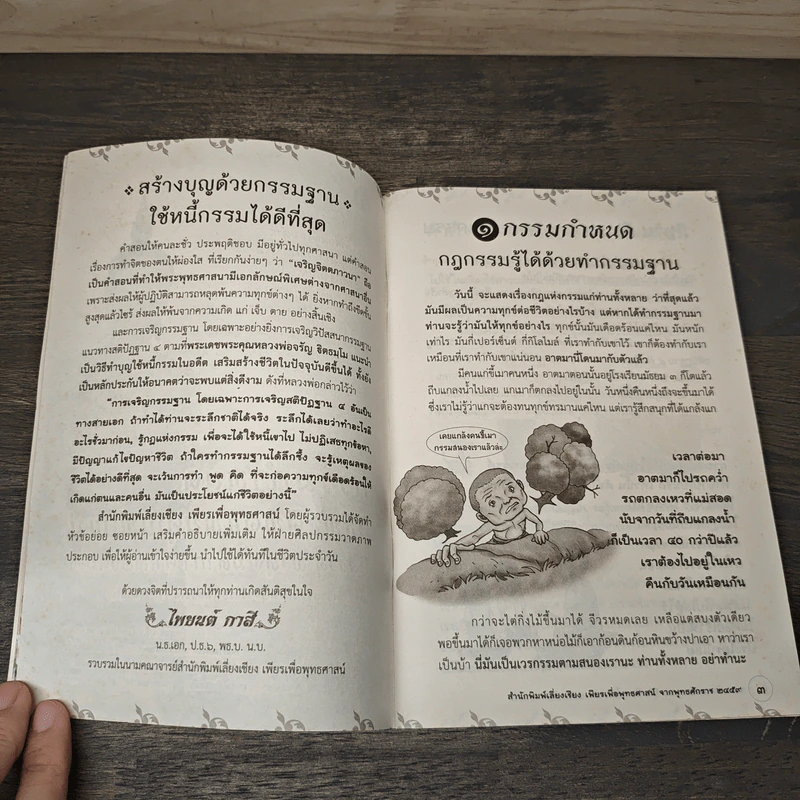 สร้างบุญด้วยกรรมฐาน
ใช้หนี้กรรมได้ดีที่สุด
คำสอนให้คนละชั่ว ประพฤติชอบ มีอยู่ทั่วไปทุกศาสนา แต่คำสอน
เรื่องการทำจิตของตนให้ผ่องใส ที่เรียกกันง่ายๆ ว่า “เจริญจิตตภาวนา” ถือ
เป็นคำสอนที่ทำให้พระพุทธศาสนามีเอกลักษณ์พิเศษต่างจากศาสนาอื่น
เพราะส่งผลให้ผู้ปฏิบัติสามารถหลุดพ้นความทุกข์ต่างๆ ได้ ยิ่งหากทำถึงขั้น
สูงสุดแล้วไซร้ ส่งผลให้พ้นจากความเกิด แก่ เจ็บ ตาย อย่างสิ้นเชิง
และการเจริญกรรมฐาน โดยเฉพาะอย่างยิ่งการเจริญวิปัสสนากรรมฐาน
แนวทางสติปัฏฐาน ๔ ตามที่พระเดชพระคุณหลวงพ่อจรัญ ฐิตธมฺโม แนะนำ
เป็นวิธีทำบุญใช้หนี้กรรมในอดีต เสริมสร้างชีวิตในปัจจุบันดีขึ้นได้ ทั้งยัง
เป็นหลักประกันให้อนาคตว่าจะพบแต่สิ่งดีงาม ดังที่หลวงพ่อกล่าวไว้ว่า
“การเจริญกรรมฐาน โดยเฉพาะการเจริญสติปัฏฐาน ๔ อันเป็น
ทางสายเอก ถ้าทำได้ท่านจะระลึกชาติได้จริง ระลึกได้เลยว่าทำอะไรดี
อะไรชั่วมาก่อน, รู้กฎแห่งกรรม เพื่อจะได้ใช้หนี้เขาไป ไม่ปฏิเสธทุกข้อหา,
มีปัญญาแก้ไขปัญหาชีวิต ถ้าใครทำกรรมฐานได้ลึกซึ้ง จะรู้เหตุผลของ
ชีวิตได้อย่างดีที่สุด จะเว้นการทำ พูด คิด ที่จะก่อความทุกข์เดือดร้อนให้
เกิดแก่ตนและคนอื่น มันเป็นประโยชน์แก่ชีวิตอย่างนี้”
สำนักพิมพ์เลี่ยงเชียง เพียรเพื่อพุทธศาสน์ โดยผู้รวบรวมได้จัดทำ
หัวข้อย่อย ซอยหน้า เสริมคำอธิบายเพิ่มเติม ให้ฝ่ายศิลปกรรมวาดภาพ
ประกอบ เพื่อให้ผู้อ่านเข้าใจง่ายขึ้น นำไปใช้ได้ทันทีในชีวิตประจำวัน
ด้วยดวงจิตที่ปรารถนาให้ทุกท่านเกิดสันติสุขในใจ
ไพยนต์ กาสี
น.ธ.เอก, ป.ธ.๖, พธ.บ. น.บ.
รวบรวมในนามคณาจารย์สำนักพิมพ์เลี่ยงเชียง เพียรเพื่อพุทธศาสน์
๑ กรรมกำหนด
กฎกรรมรู้ได้ด้วยทำกรรมฐาน
วันนี้ จะแสดงเรื่องกฎแห่งกรรมแก่ท่านทั้งหลาย ว่าที่สุดแล้ว
มันมีผลเป็นความทุกข์ต่อชีวิตอย่างไรบ้าง แต่หากได้ทำกรรมฐานมา
ท่านจะรู้ว่ามันให้ทุกข์อย่างไร ทุกข์นั้นมันเดือดร้อนแค่ไหน มันหนัก
เท่าไร มันกี่เปอร์เซ็นต์ กี่กิโลไมล์ ที่เราทำกับเขาไว้ เขาก็ต้องทำกับเรา
เหมือนที่เราทำกับเขาแน่นอน อาตมานี่โดนมากับตัวแล้ว
มีคนแก่ขี้เมาคนหนึ่ง อาตมาตอนนั้นอยู่โรงเรียนมัธยม ๓ ก็โตแล้ว
ถีบแกลงน้ำไปเลย แกเมาก็ตกลงไปอยู่ในน้ำ วันหนึ่งคืนหนึ่งถึงจะขึ้นมาได้
ซึ่งเราไม่รู้ว่าแกจะต้องทนทุกข์ทรมานแค่ไหน แต่เรารู้สึกสนุกที่ได้แกล้งแก
เคยแกล้งคนขี้เมา
กรรมสนองเราแล้วล่ะ
เวลาต่อมา
อาตมาก็ไปรถคว่ำ
รถตกลงเหวที่แม่สอด
นับจากวันที่ถีบแกลงน้ำ
ก็เป็นเวลา ๔๐ กว่าปีแล้ว
เราต้องไปอยู่ในเหว
คืนกับวันเหมือนกัน
กว่าจะไต่กิ่งไม้ขึ้นมาได้ จีวรหมดเลย เหลือแต่สบงตัวเดียว
พอขึ้นมาได้ก็เจอพวกหาหน่อไม้ก็เอาก้อนดินก้อนหินขว้างปาเอา หาว่าเรา
เป็นบ้า นี่มันเป็นเวรกรรมตามสนองเรานะ ท่านทั้งหลาย อย่าทำนะ
สำนักพิมพ์เลี่ยงเชียง เพียรเพื่อพุทธศาสน์ จากพุทธศักราช ๒๔๕๙ ๓